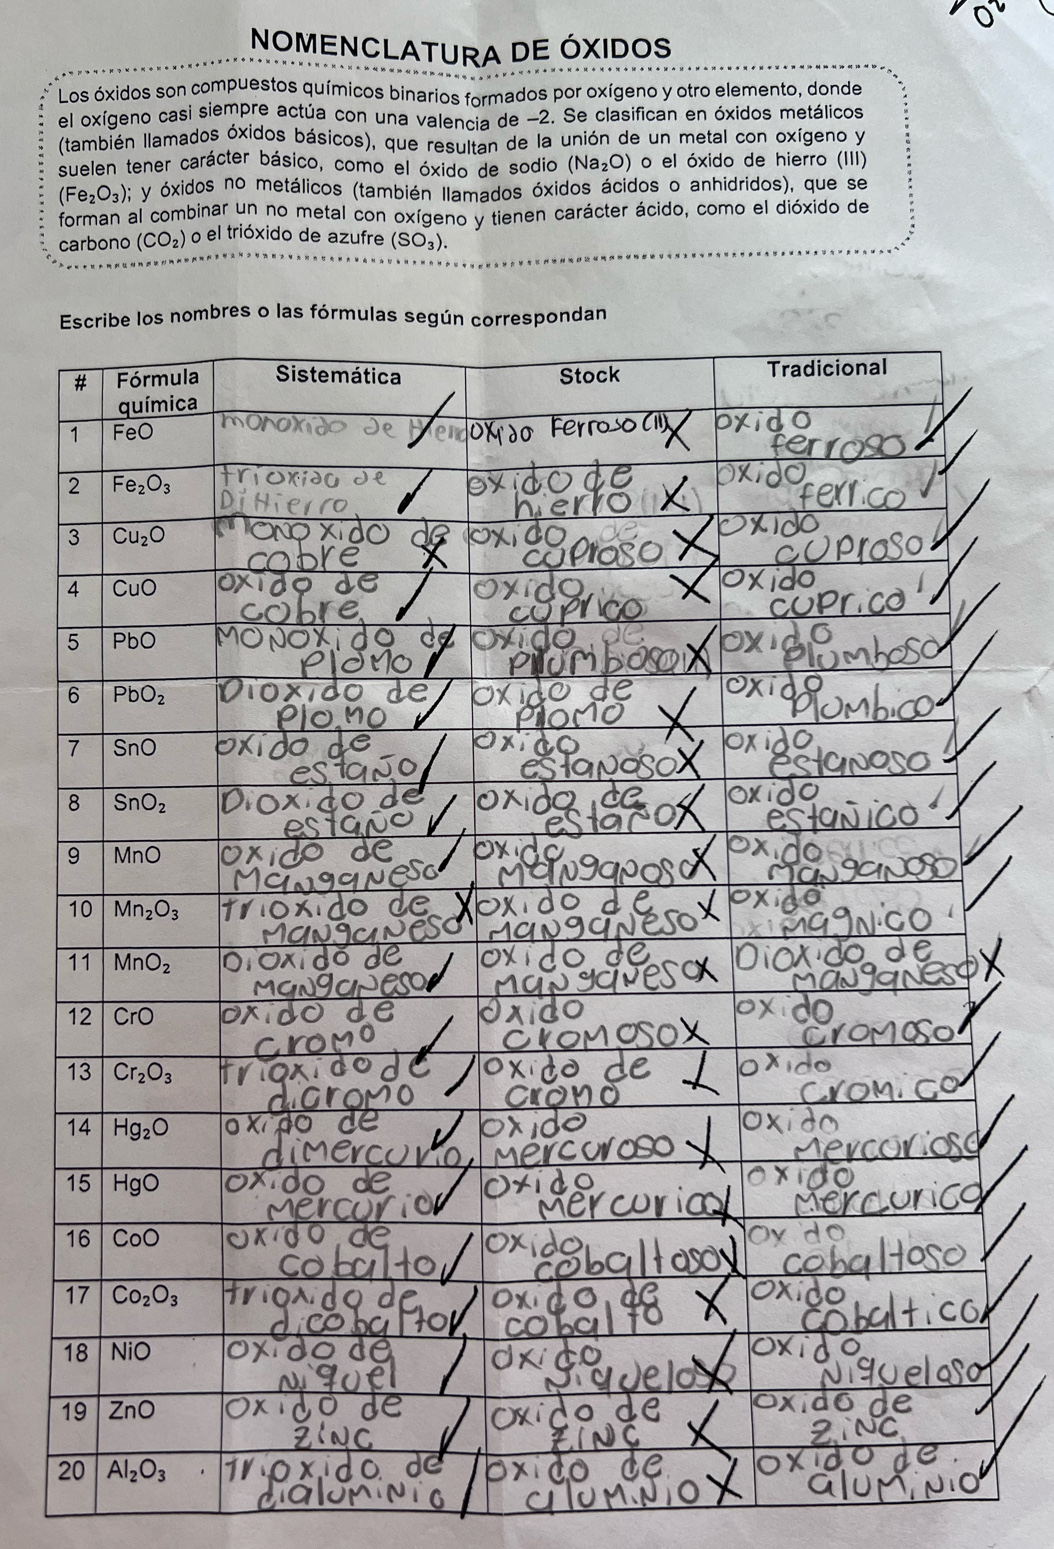 02
NOMENCLATURA DE ÓXIDOS
Los óxidos son compuestos químicos binarios formados por oxígeno y otro elemento, donde
el oxígeno casi siempre actúa con una valencia de –2. Se clasifican en óxidos metálicos
(también llamados óxidos básicos), que resultan de la unión de un metal con oxígeno y
suelen tener carácter básico, como el óxido de sodio (Na₂O) o el óxido de hierro (III)
(Fe₂O₃); y óxidos no metálicos (también llamados óxidos ácidos o anhidridos), que se
forman al combinar un no metal con oxígeno y tienen carácter ácido, como el dióxido de
carbono (CO₂) o el trióxido de azufre (SO₃).
Escribe los nombres o las fórmulas según correspondan
# Fórmula química Sistemática Stock Tradicional
1 FeO monoxido de Hierro oxido Ferroso (II) oxido ferroso
2 Fe₂O₃ trioxido de DiHierro oxido de hierro oxido ferrico
3 Cu₂O Monoxido de cobre oxido cuproso oxido cuproso
4 CuO oxido de cobre oxido cuprico oxido cuprico
5 PbO Monoxido de Plomo oxido plumboso oxido plumboso
6 PbO₂ Dioxido de Plomo oxido de Plomo oxido Plumbico
7 SnO oxido de estaño oxido estanoso oxido estanoso
8 SnO₂ Dioxido de estaño oxido de estaño oxido estañico
9 MnO oxido de manganeso oxido manganoso oxido manganoso
10 Mn₂O₃ trioxido de manganeso oxido de manganeso oxido magnico
11 MnO₂ Dioxido de manganeso oxido de manganeso Dioxido de manganeso
12 CrO oxido de cromo oxido cromoso oxido cromoso
13 Cr₂O₃ trioxido de dicromo oxido de cromo oxido cromico
14 Hg₂O oxido de dimercurio oxido mercuroso oxido mercurioso
15 HgO oxido de mercurio oxido mercurico oxido mercurico
16 CoO oxido de cobalto oxido cobaltoso oxido cobaltoso
17 Co₂O₃ trioxido de dicobalto oxido de cobalto oxido cobaltico
18 NiO oxido de niquel oxido niqueloso oxido niqueloso
19 ZnO oxido de zinc oxido de zinc oxido de zinc
20 Al₂O₃ trioxido de dialuminio oxido de aluminio oxido de aluminio